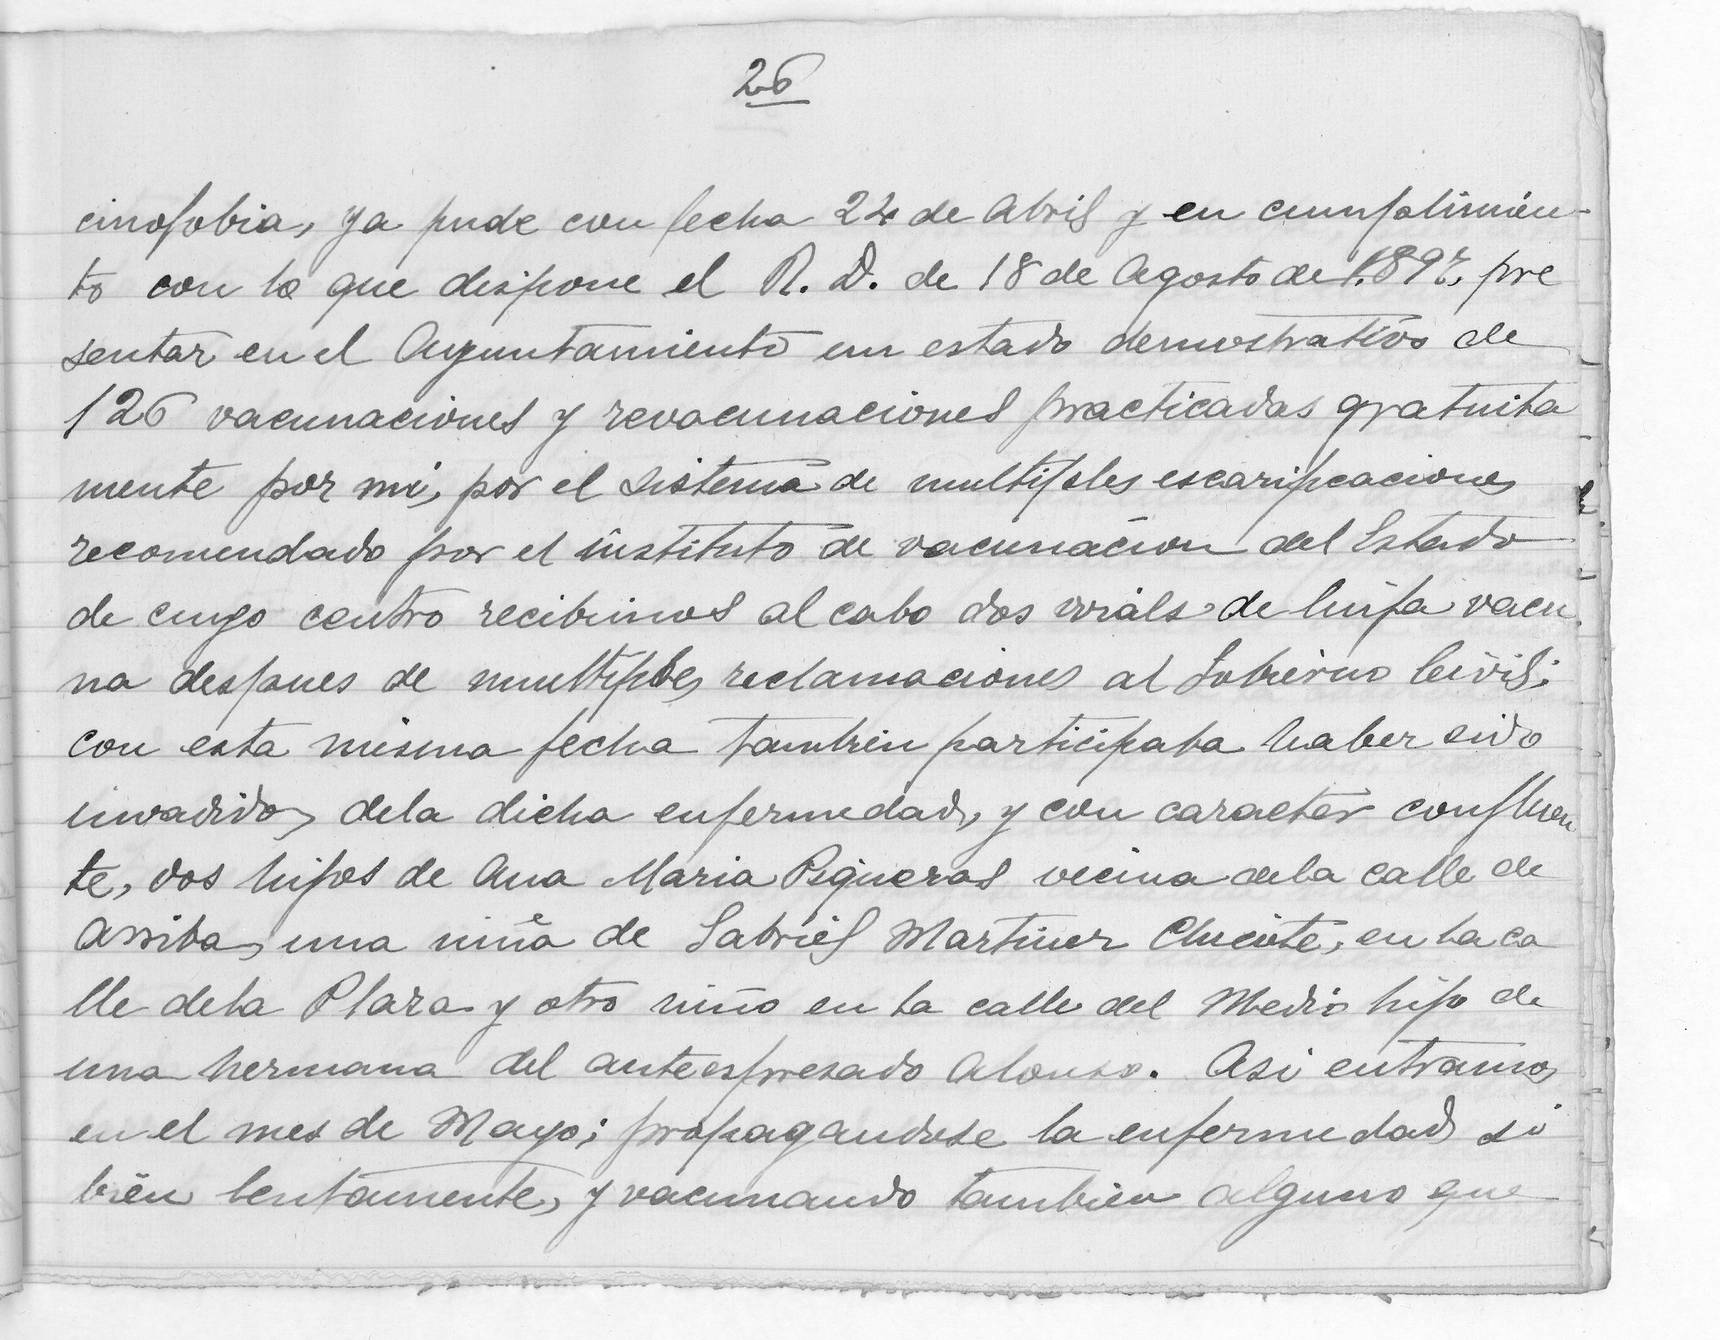 26
cinofobia, ya pude con fecha 24 de Abril y en cumplimien-
to con lo que dispone el R. D. de 18 de Agosto de 1.891, pre
sentar en el Ayuntamiento un estado demostrativo de
126 vacunaciones y revacunaciones practicadas gratuita
mente por mi, por el sistema de multiples escarificaciones
recomendado por el instituto de vacunación del Estado
de cuyo centro recibimos al cabo dos vials de linfa vacu
na despues de multiples reclamaciones al Gobierno Civil;
con esta misma fecha tambien participaba haber sido
invadidos dela dicha enfermedad, y con caracter confluen
te, dos hijos de Ana Maria Piqueras vecina dela calle de
Arriba, una niña de Gabriel Martinez Cluente, en la ca
lle dela Plaza y otro niño en la calle del Medio hijo de
una hermana del anteespresado Alonso. Asi entramos
en el mes de Mayo; propagandose la enfermedad si
bien lentamente, y vacunando tambien alguno que